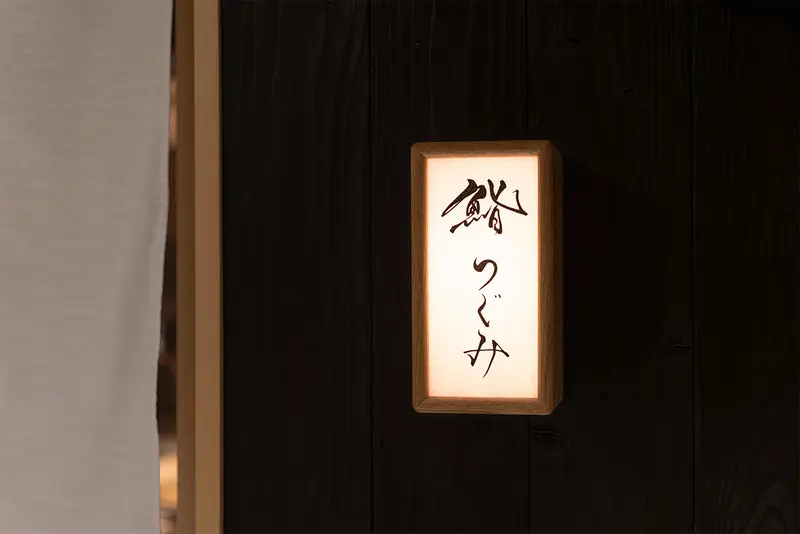 鮨つぐみ